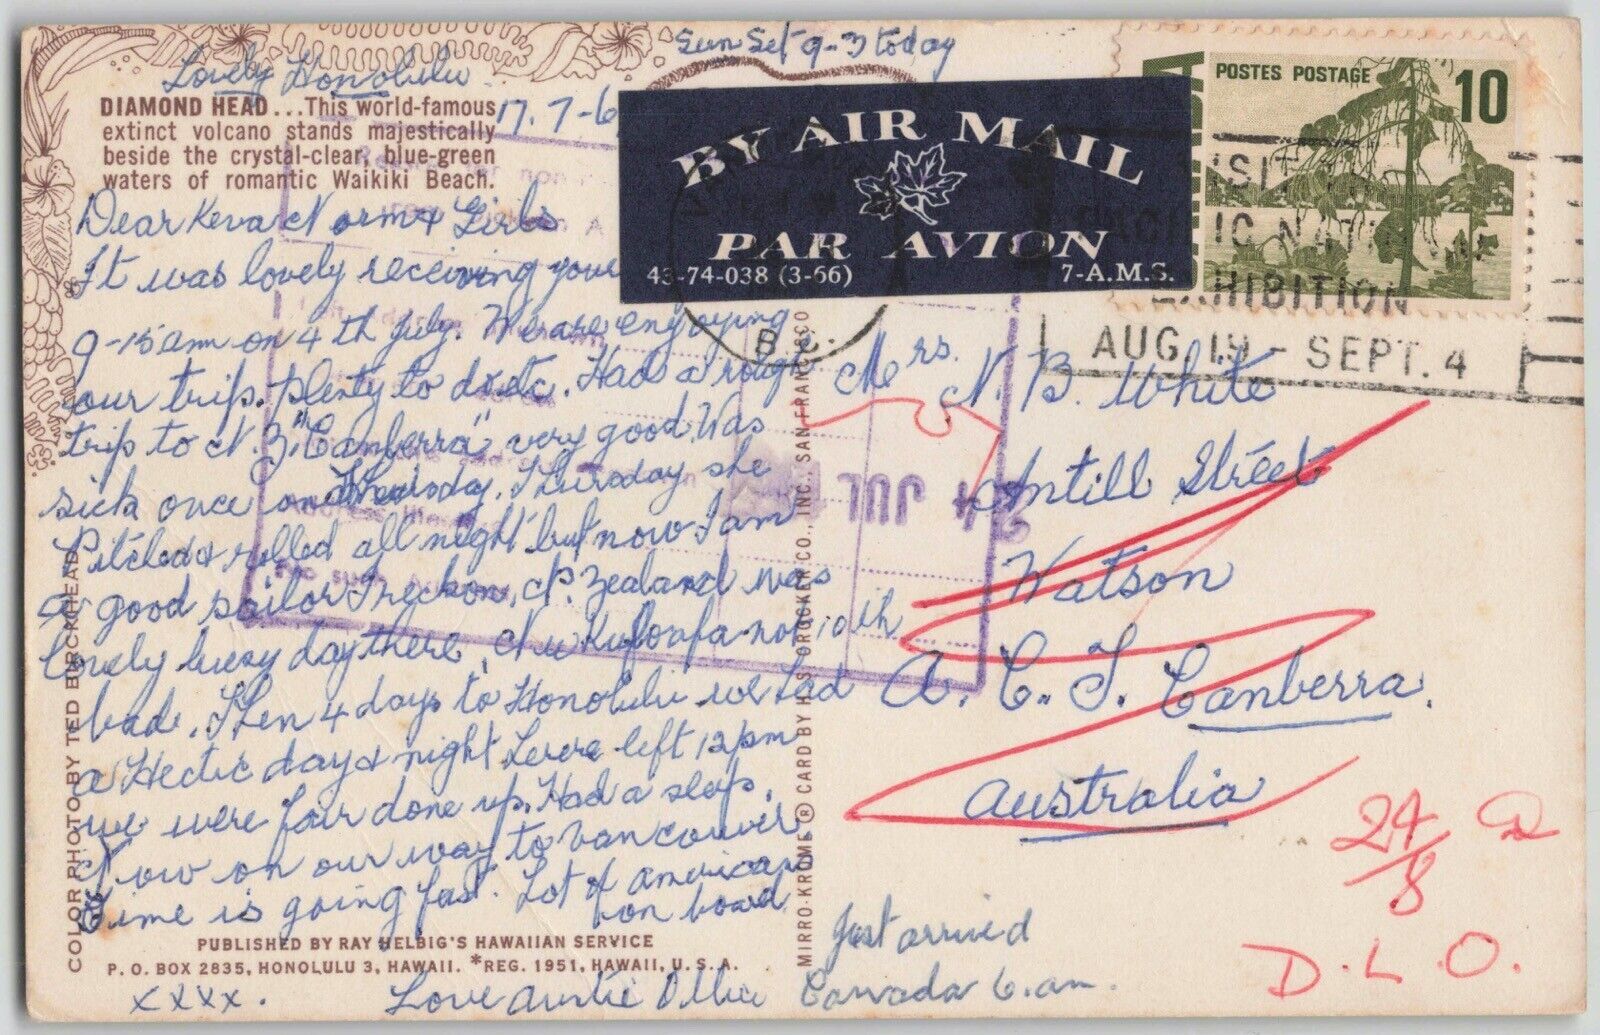 Sun Set 9-3 today
Lovely Honolulu
17.7-6
DIAMOND HEAD...This world-famous
extinct volcano stands majestically
beside the crystal-clear, blue-green
waters of romantic Waikiki Beach.
Dear Keva Norm & Girls
It was lovely receiving your
9-15am on 4th July. We are enyoying
our trip. Plenty to do etc. Had a rough
trip to N.Z. "Canberra" very good. Was
sick once on Thursday. Thursday she
Pitched & rolled all night but now I am
a good sailor I reckon. N. Zealand was
lovely every day there, Nukuloafa not
bad. Then 4 days to Honolulu we had
a Hectic day & night here left 12pm
we were fair done up. Had a sleep.
Now on our way to Vancouver
Time is going fast. Lot of american
on board
PUBLISHED BY RAY HELBIG'S HAWAIIAN SERVICE
P. O. BOX 2835, HONOLULU 3, HAWAII. *REG. 1951, HAWAII, U.S.A.
xxxx. Love Auntie
COLOR PHOTO BY TED BROCKHEAD
MIRRO-KROME ® CARD BY H. S. CROCKER CO., INC., SAN FRANCISCO
BY AIR MAIL
PAR AVION
43-74-038 (3-66) 7-A.M.S.
POSTES POSTAGE 10
CANADA
B.C.
VISIT THE
PACIFIC NATIONAL
EXHIBITION
AUG. 19 - SEPT. 4
24 JUL
No such
Mrs. N. B. White
Antill Street
Watson
A. C. T. Canberra.
Australia
Just arrived
Canada 6.am.
24/8
D.L.O.